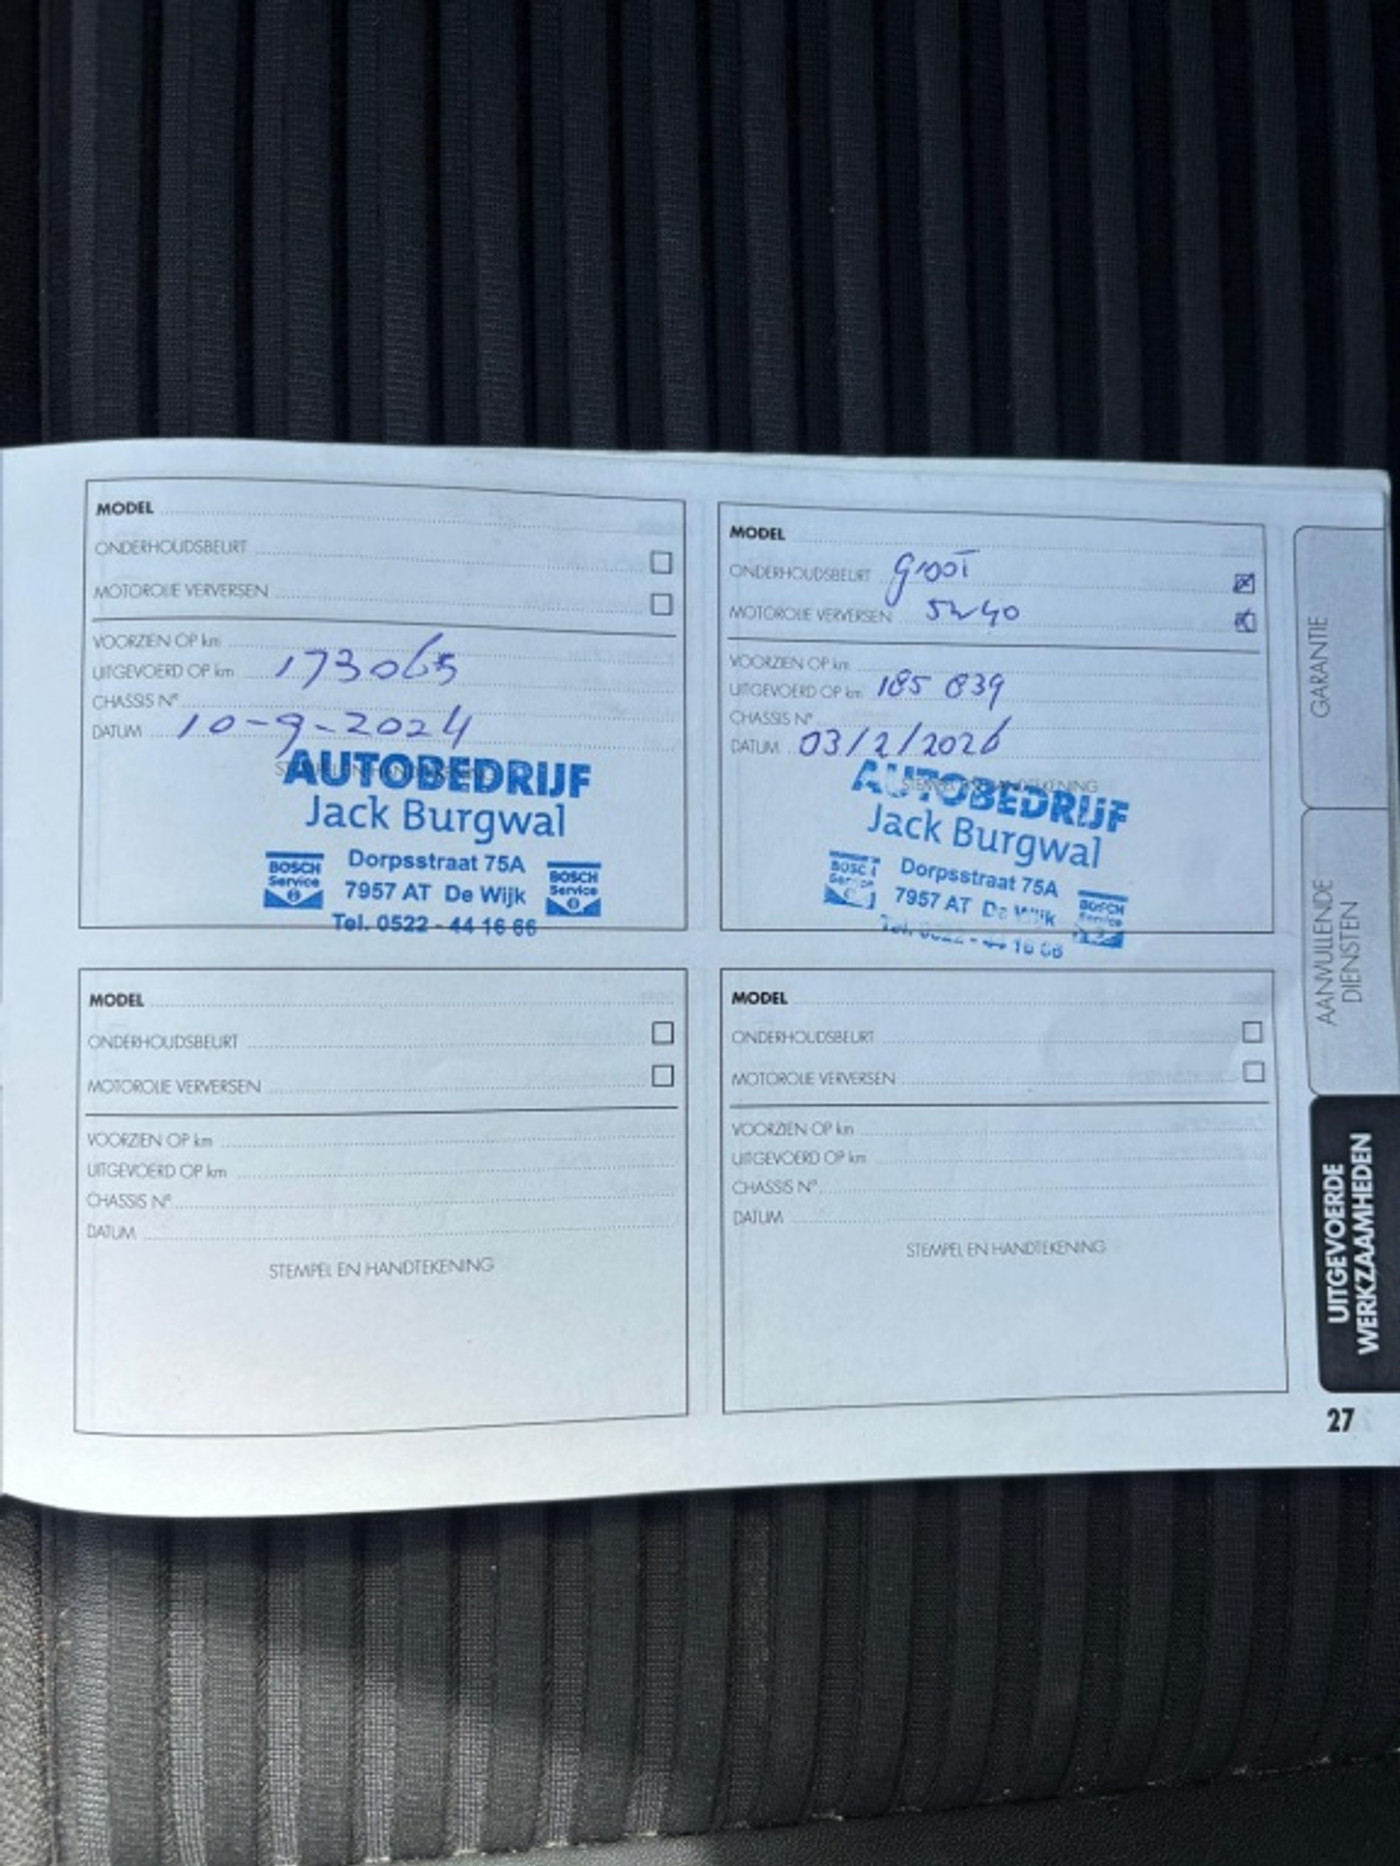 MODEL
ONDERHOUDSBEURT
MOTOROLIE VERVERSEN
VOORZIEN OP km
UITGEVOERD OP km 173065
CHASSIS N°
DATUM 10-9-2024
STEMPEL EN HANDTEKENING
AUTOBEDRIJF
Jack Burgwal
BOSCH Service Dorpsstraat 75A BOSCH Service
7957 AT De Wijk
Tel. 0522 - 44 16 66
MODEL
ONDERHOUDSBEURT groot
MOTOROLIE VERVERSEN 5w40
VOORZIEN OP km
UITGEVOERD OP km 185 839
CHASSIS N°
DATUM 03/2/2026
STEMPEL EN HANDTEKENING
AUTOBEDRIJF
Jack Burgwal
BOSCH Service Dorpsstraat 75A BOSCH Service
7957 AT De Wijk
Tel. 0522 - 44 16 66
MODEL
ONDERHOUDSBEURT
MOTOROLIE VERVERSEN
VOORZIEN OP km
UITGEVOERD OP km
CHASSIS N°
DATUM
STEMPEL EN HANDTEKENING
MODEL
ONDERHOUDSBEURT
MOTOROLIE VERVERSEN
VOORZIEN OP km
UITGEVOERD OP km
CHASSIS N°
DATUM
STEMPEL EN HANDTEKENING
GARANTIE
AANVULLENDE
DIENSTEN
UITGEVOERDE
WERKZAAMHEDEN
27